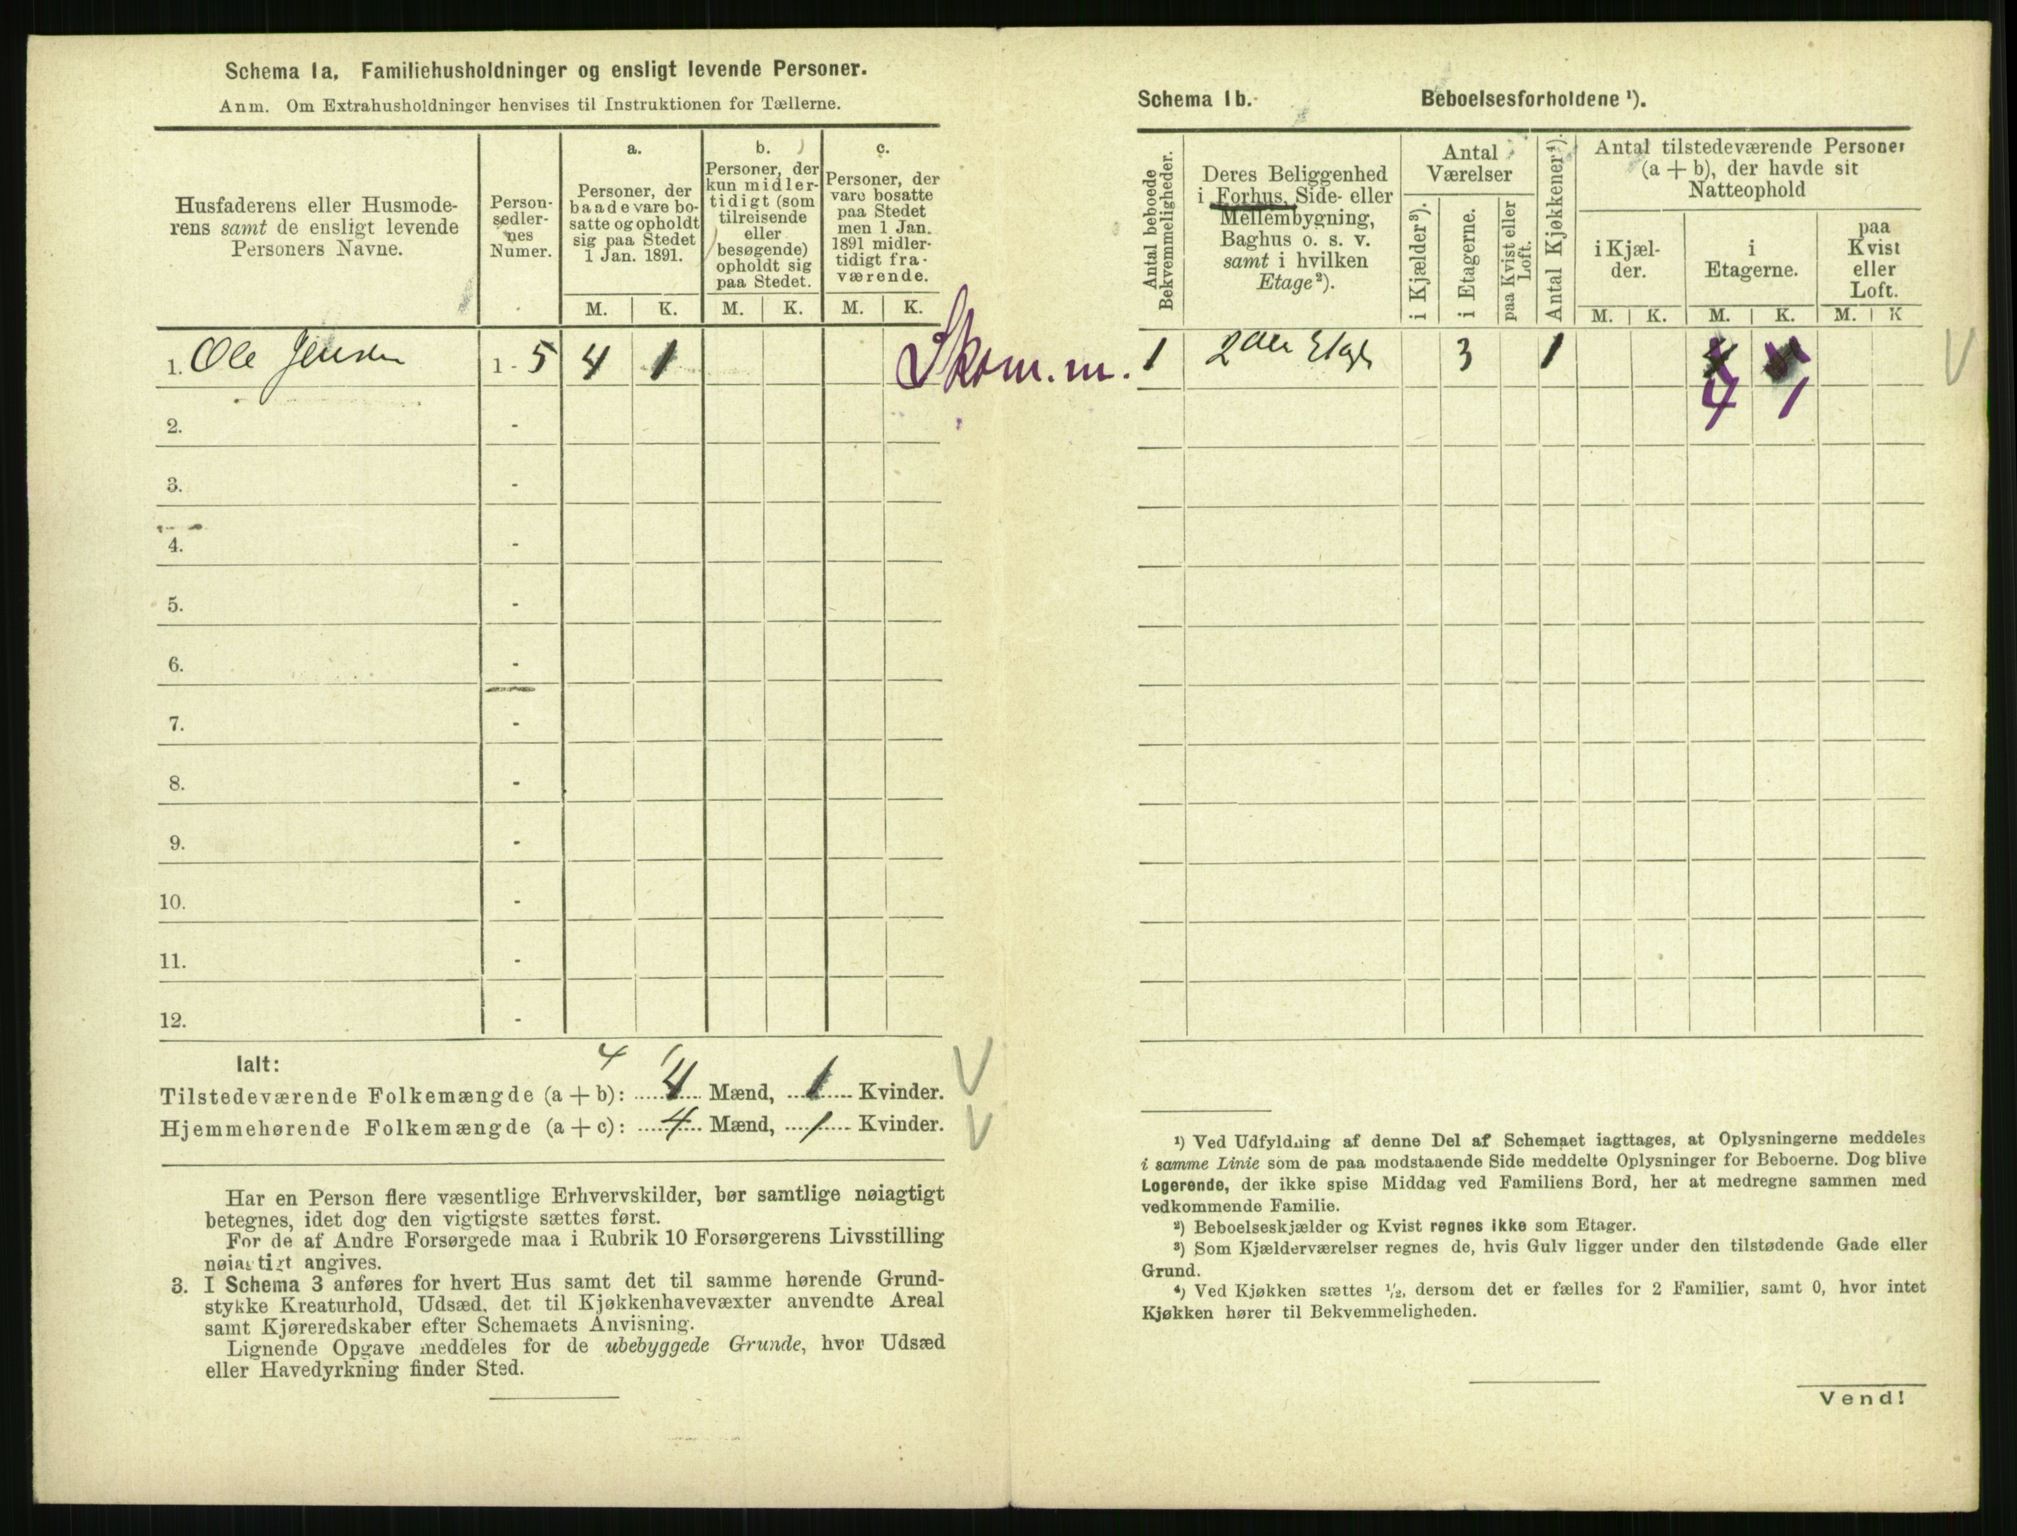 Schema 1a. Familiehusholdninger og ensligt levende Personer.
Anm. Om Extrahusholdninger henvises til Instruktionen for Tællerne.
Husfaderens eller Husmode-
rens samt de ensligt levende
Personers Navne.
Person-
sedler-
nes
Numer.
a.
Personer, der
baade vare bo-
satte og opholdt
sig paa Stedet
1 Jan. 1891.
b.
Personer, der
kun midler-
tidigt (som
tilreisende
eller
besøgende)
opholdt sig
paa Stedet.
c.
Personer, der
vare bosatte
paa Stedet
men 1 Jan.
1891 midler-
tidigt fra-
værende.
M. K. M. K. M. K.
1. Ole Jensen 1 - 5 4 1
Skom. m.
2. -
3. -
4. -
5. -
6. -
7. -
8. -
9. -
10. -
11. -
12. -
Ialt: 4
Tilstedeværende Folkemængde (a + b): 4 Mænd, 1 Kvinder.
Hjemmehørende Folkemængde (a + c): 4 Mænd, 1 Kvinder.
Har en Person flere væsentlige Erhvervskilder, bør samtlige nøiagtigt
betegnes, idet dog den vigtigste sættes først.
For de af Andre Forsørgede maa i Rubrik 10 Forsørgerens Livsstilling
nøiagtigt angives.
3. I Schema 3 anføres for hvert Hus samt det til samme hørende Grund-
stykke Kreaturhold, Udsæd, det til Kjøkkenhavevæxter anvendte Areal
samt Kjøreredskaber efter Schemaets Anvisning.
Lignende Opgave meddeles for de ubebyggede Grunde, hvor Udsæd
eller Havedyrkning finder Sted.
Schema 1b. Beboelsesforholdene ¹).
Antal beboede
Bekvemmeligheder.
Deres Beliggenhed
i Forhus, Side- eller
Mellembygning,
Baghus o. s. v.
samt i hvilken
Etage²).
Antal
Værelser
i Kjælder³).
i Etagerne.
paa Kvist eller
Loft.
Antal Kjøkkener⁴).
Antal tilstedeværende Personer
(a + b), der havde sit
Natteophold
i Kjæl-
der.
i
Etagerne.
paa
Kvist
eller
Loft.
M. K. M. K. M. K
1 2den Etage 3 1
4 1
¹) Ved Udfyldning af denne Del af Schemaet iagttages, at Oplysningerne meddeles
i samme Linie som de paa modstaaende Side meddelte Oplysninger for Beboerne. Dog blive
Logerende, der ikke spise Middag ved Familiens Bord, her at medregne sammen med
vedkommende Familie.
²) Beboelseskjælder og Kvist regnes ikke som Etager.
³) Som Kjælderværelser regnes de, hvis Gulv ligger under den tilstødende Gade eller
Grund.
⁴) Ved Kjøkken sættes ½, dersom det er fælles for 2 Familier, samt 0, hvor intet
Kjøkken hører til Bekvemmeligheden.
Vend!